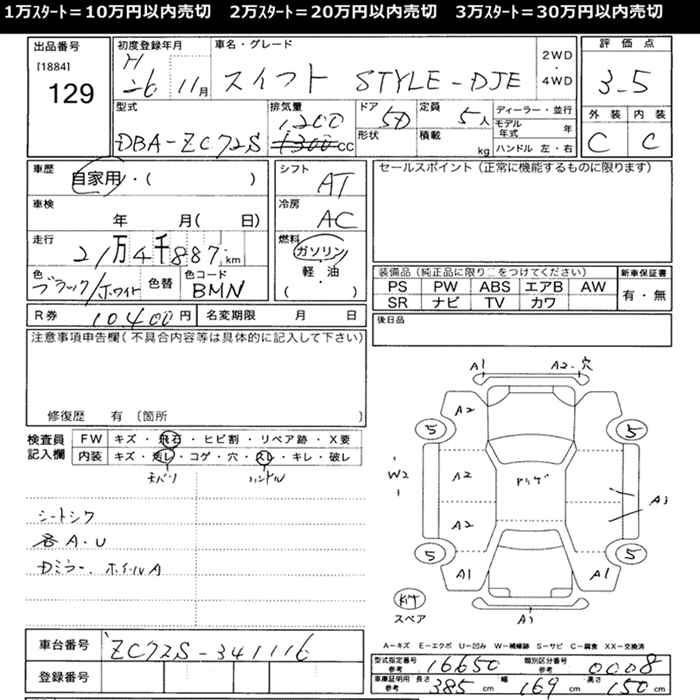 1万スタート=10万円以内売切　2万スタート=20万円以内売切　3万スタート=30万円以内売切
出品番号
[1884]
129
初度登録年月
H
26 11月
車名・グレード
スイフト STYLE-DJE
2WD
・
4WD
評価点
3.5
外装 内装
C C
型式
DBA-ZC72S
排気量
1200
1300cc
ドア
5D
形状
定員
5人
積載
kg
ディーラー・並行
モデル年式 年
ハンドル 左・右
車歴
自家用・( )
車検
年 月( 日)
走行
21万4千887km
色
ブラック/ホワイト
色替
色コード
BMN
シフト
AT
冷房
AC
燃料
ガソリン
・
軽・油
( )
R券 10,400円
名変期限 月 日
セールスポイント(正常に機能するものに限ります)
装備品(純正品に限り○をつけてください)
PS PW ABS エアB AW
SR ナビ TV カワ
新車保証書
有・無
後日品
注意事項申告欄(不具合内容等は具体的に記入して下さい)
修復歴 有 〔箇所
検査員
記入欄
FW キズ・飛石・ヒビ割・リペア跡・X要
内装 キズ・剥レ・コゲ・穴・スレ・キレ・破レ
ハンドル
シートシワ
各A.U
Dミラー、ホイールA
A1 A2.穴
A2
5 5
W2
A2
A2
A3
5 5
A1 A1
スペア
車台番号 ZC72S-341116
登録番号
A-キズ E-エクボ U-凹み W-補修跡 S-サビ C-腐食 XX-交換済
型式指定番号
参考 16650
類別区分番号
参考 0008
車庫証明用
参考
長さ 385cm 幅 169cm 高さ 150cm